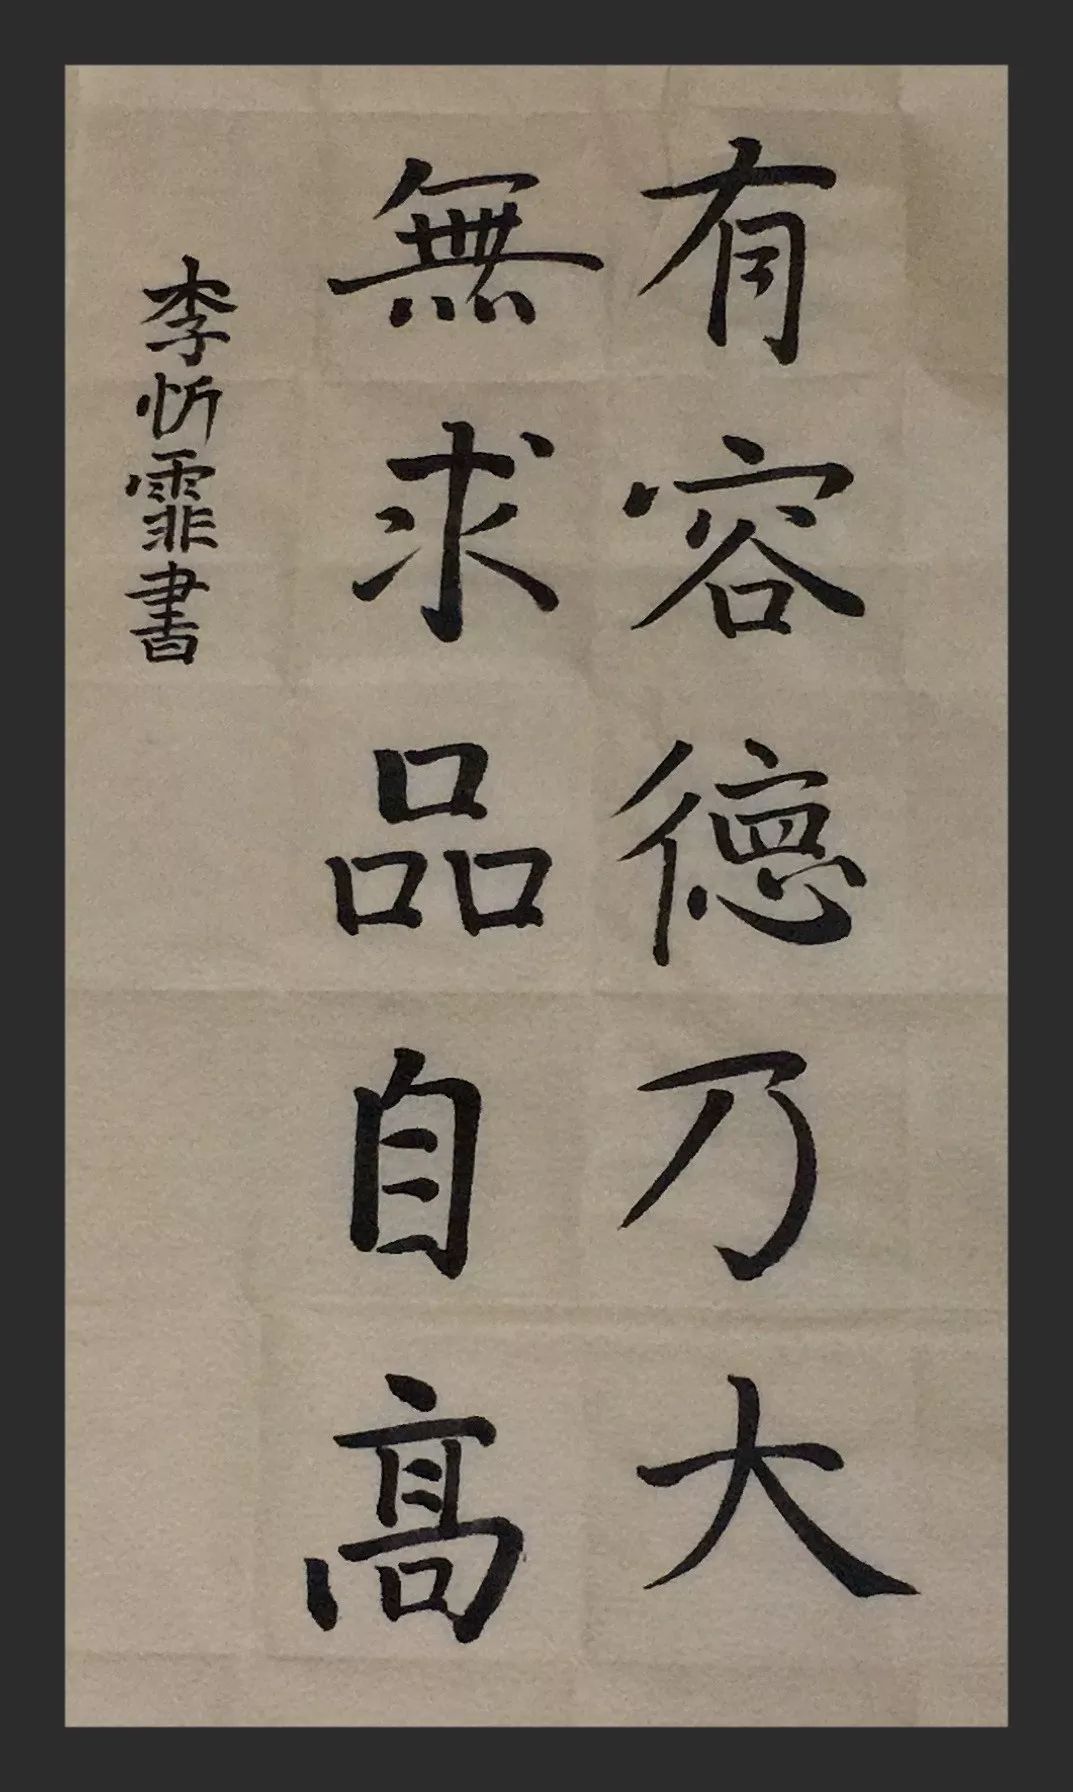 有容德乃大
無求品自高
李忻霏書